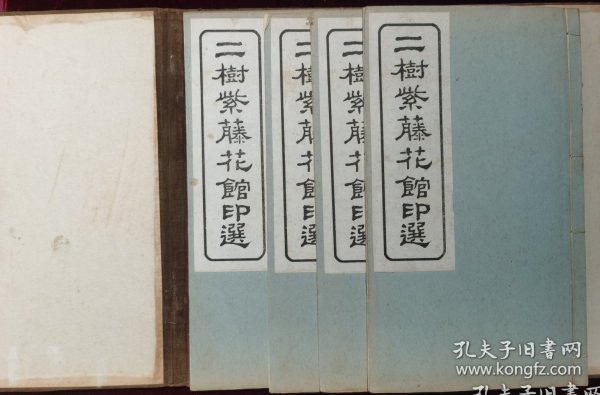 二樹紫藤花館印選
二樹紫藤花館印選
二樹紫藤花館印選
二樹紫藤花館印選
孔夫子旧书网
www.kongfz.com
孔夫子旧书网